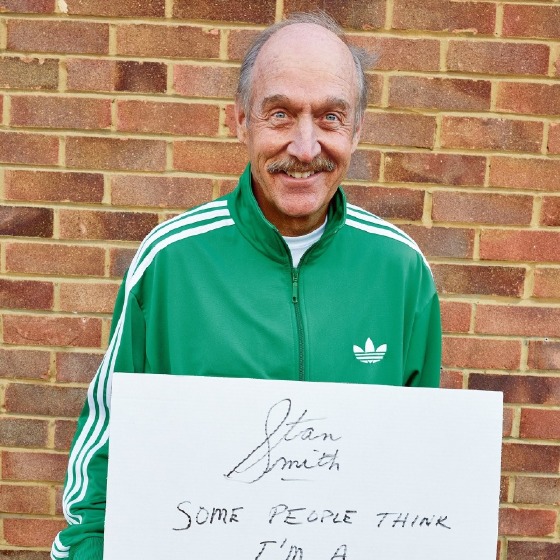 Stan
Smith
SOME PEOPLE THINK
I'M A